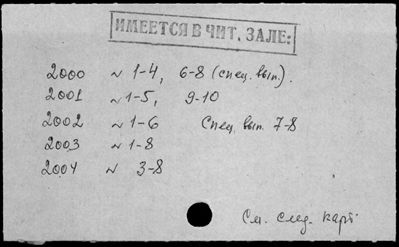 ИМЕЕТСЯ В ЧИТ. ЗАЛЕ:
2000 № 1-4, 6-8 (спец. вып.).
2001 № 1-5, 9-10
2002 № 1-6 Спец. вып. 7-8
2003 № 1-8
2004 № 3-8
См. след. карт.